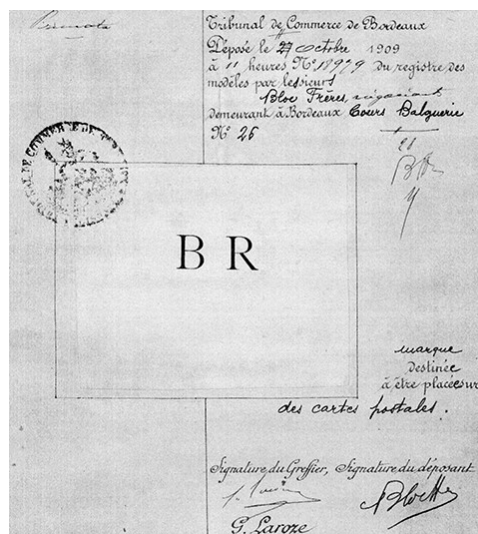 Tribunal de Commerce de Bordeaux
Déposé le 27 octobre 1909
à 11 heures, N° 18979 du registre des
modèles par les sieurs
Bloc Frères, négociant
demeurant à Bordeaux Cours Balguerie
N° 26
COMMERCE DE
B R
marque
Destinée
à être placée sur
des cartes postales.
Signature du Greffier, Signature du déposant
G. Laroze